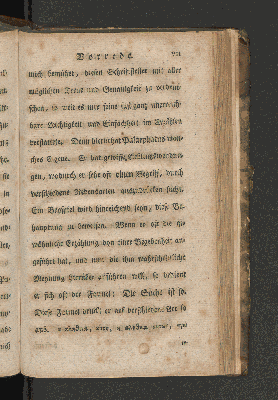 Vorrede. VII
mich bemühet, diesen Schriftsteller mit aller
möglichen Treue und Genauigkeit zu verdeut-
schen, so weit es mir seine fast ganz unerreich-
bare Leichtigkeit und Einfachheit im Erzählen
verstattete. Denn hierin hat Palaephatus man-
ches Eigene. Er hat gewisse Lieblingswendun-
gen, wodurch er sehr oft einen Begriff, durch
verschiedene Redensarten auszudrücken sucht.
Ein Beyspiel wird hinreichend seyn, diese Be-
hauptung zu beweisen. Wenn er oft die ge-
wöhnliche Erzählung von einer Begebenheit an-
geführt hat, und nun die wahrscheinliche
Meynung hierüber anführen will, so bedient
er sich oft der Formel: Die Sache ist so.
Diese Formel drückt er auf verschiedene Art so
aus.